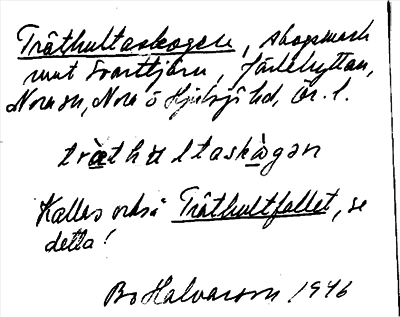 Tråthultaskogen, skogsmark
runt Svarttjärn, Järlehyttan,
Norasn, Nora o Hjulsjö hd, Ör. l.
tràthultaskògən
Kallas också Tråthultfallet, se
detta!
Bo Halvarson 1946